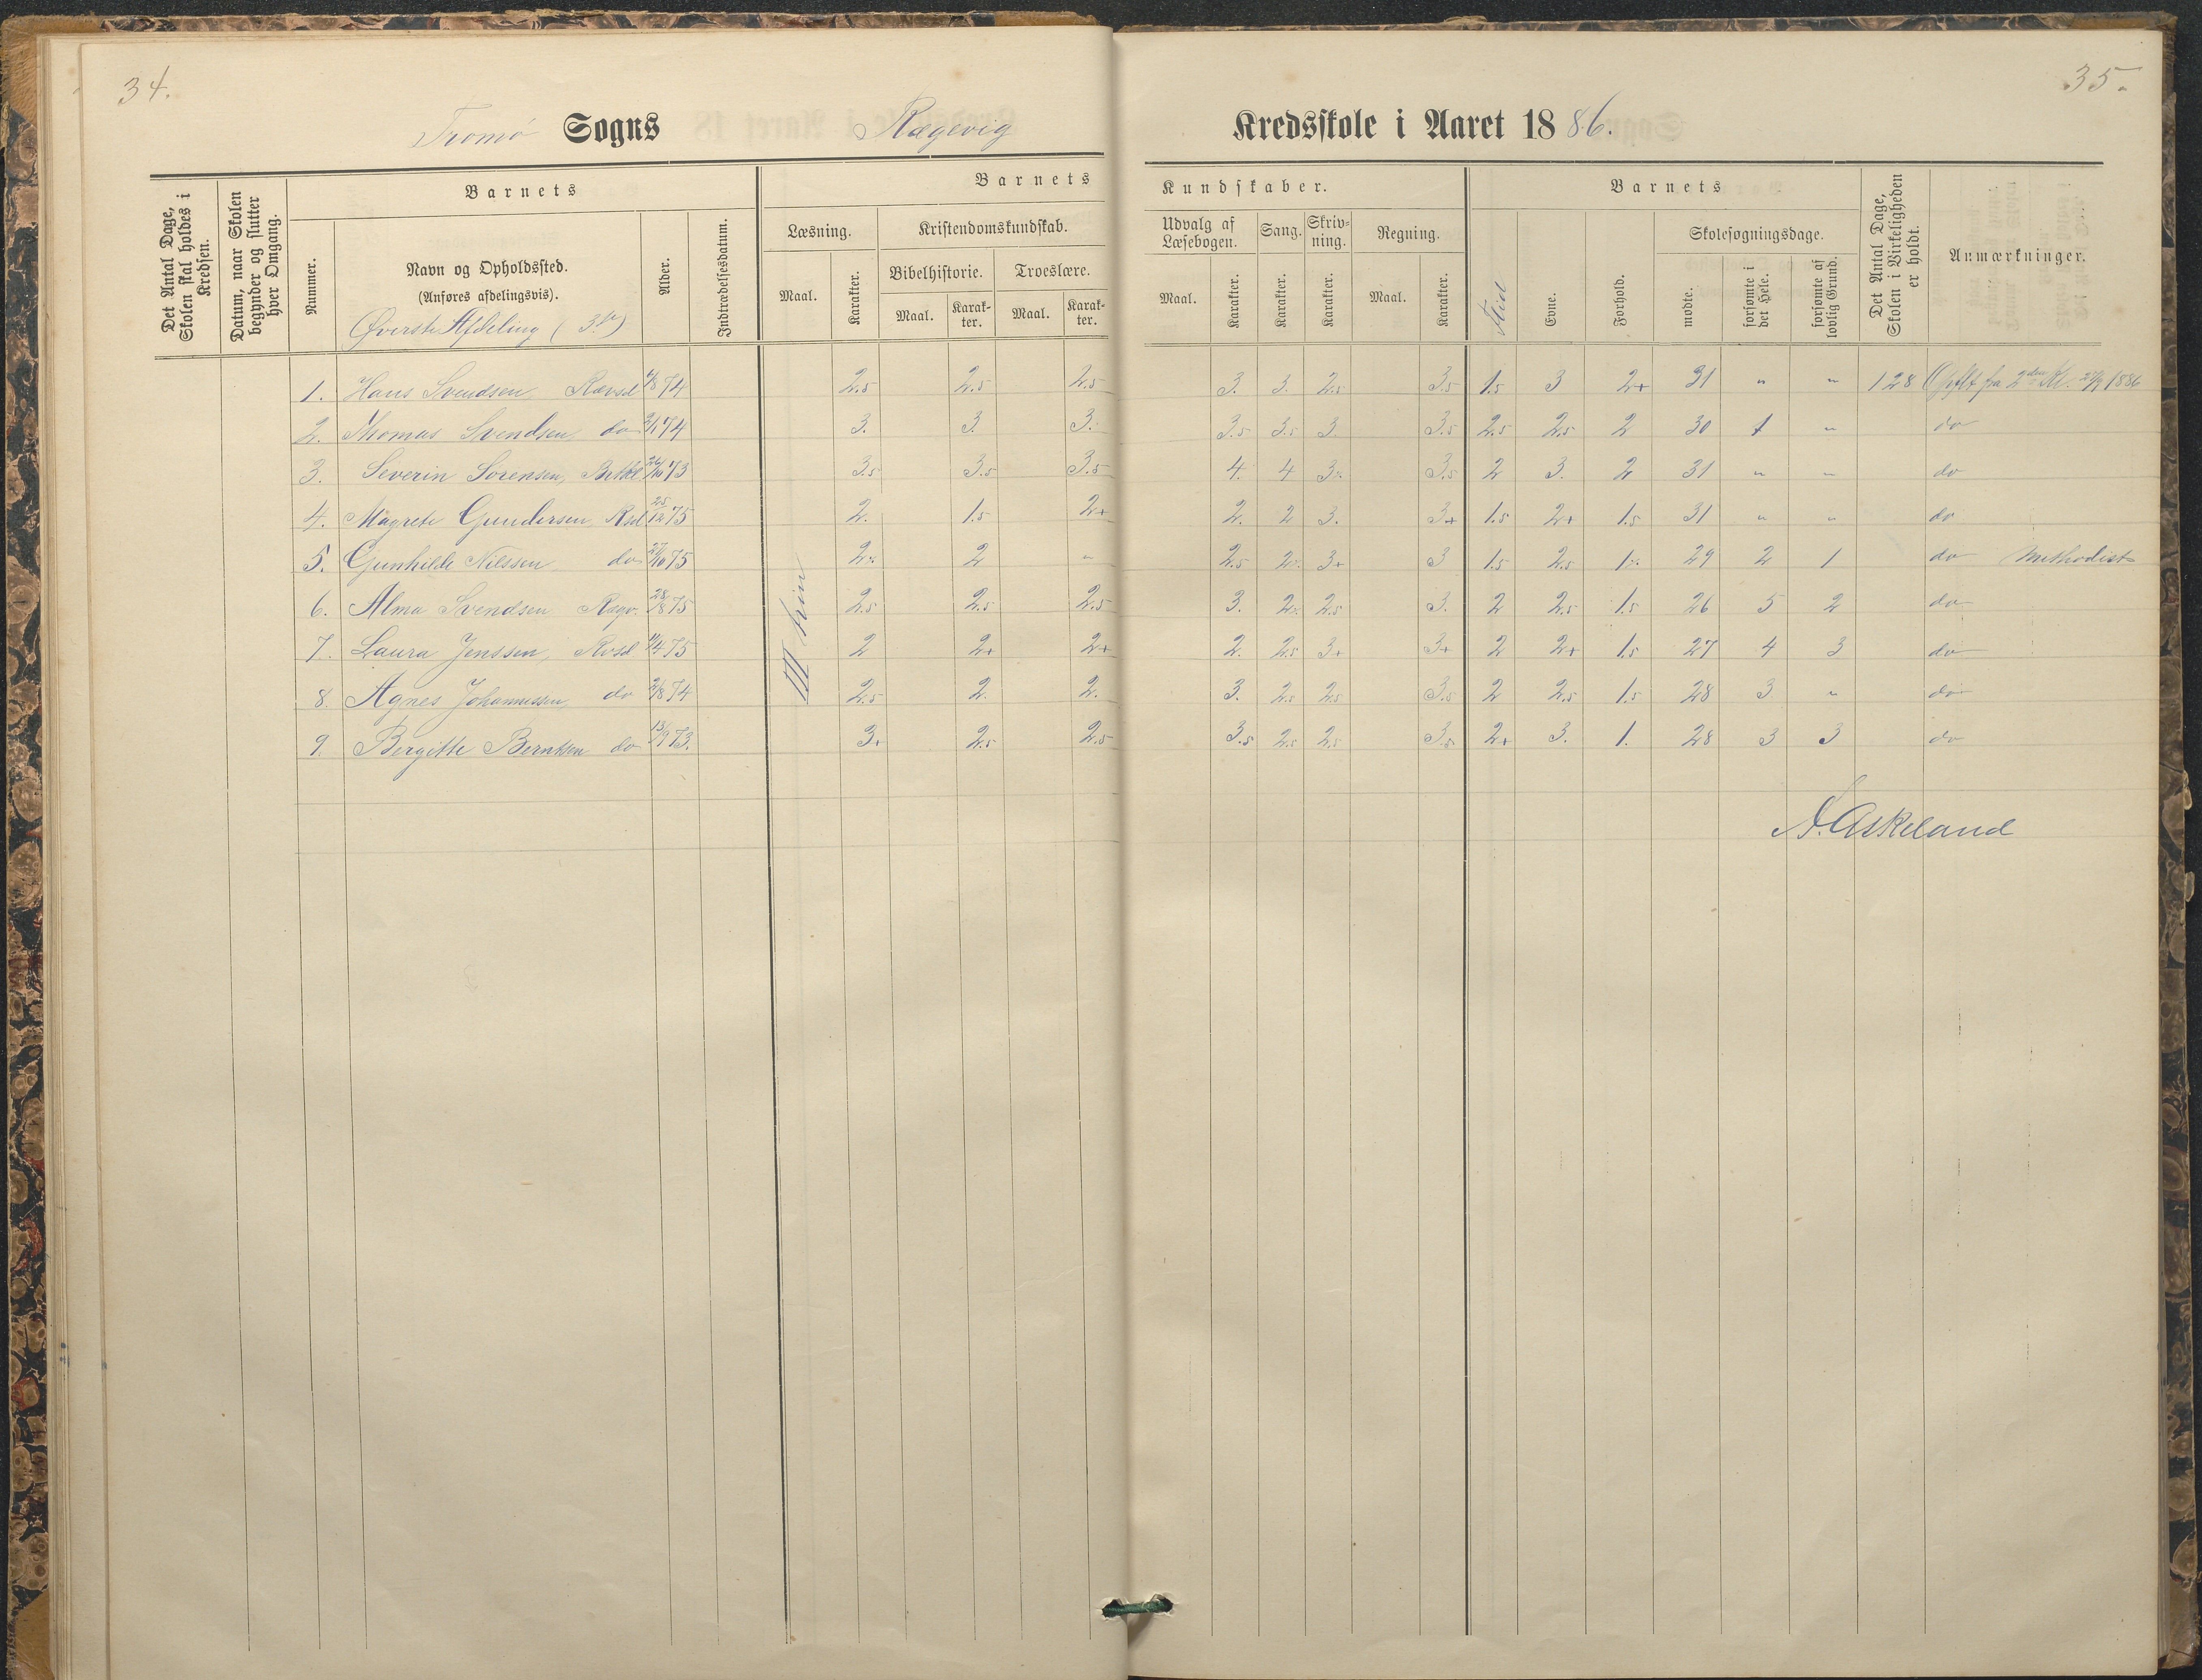 34.
35.
Tromø Sogns Rægevig Kredsskole i Aaret 1886.
Det Antal Dage, Skolen skal holdes i Kredsen.
Datum, naar Skolen begynder og slutter hver Omgang.
Barnets
Nummer.
Navn og Opholdssted.
(Anføres afdelingsvis).
Øverste Afdeling (3.)
Alder.
Indtrædelsesdatum.
Barnets Kundskaber.
Læsning.
Maal.
Karakter.
Kristendomskundskab.
Bibelhistorie.
Maal.
Karakter.
Troeslære.
Maal.
Karakter.
Udvalg af Læsebogen.
Maal.
Karakter.
Sang.
Karakter.
Skrivning.
Karakter.
Regning.
Maal.
Karakter.
Barnets
Flid
Evne.
Forhold.
Skolesøgningsdage.
mødte.
forsømte i det Hele.
forsømte af lovlig Grund.
Det Antal Dage, Skolen i Virkeligheden er holdt.
Anmærkninger.
III trin
1. Hans Svendsen, Rævsd 74 2.5 2.5 2.5 3. 3. 2.5 3.5 1.5 3 2+ 31 " " 128 Opflt fra 2den Kl. 1886
2. Thomas Svendsen do 74 3. 3. 3. 3.5 3.5 3. 3.5 2.5 2.5 2 30 1 " do
3. Severin Sørensen, 73 3.5 3.5 3.5 4. 4 3 3.5 2 3. 2 31 " " do
4. Magrete Gundersen, Rsd 25/12 75 2. 1.5 2+ 2. 2 3. 3+ 1.5 2+ 1.5 31 " " do
5. Gunhilde Nilssen do 27/10 75 2 2 " 2.5 2 3+ 3 1.5 2.5 1 29 2 1 do Methodist
6. Alma Svendsen Rægv. 28/8 75 2.5 2.5 2.5 3. 2 2.5 3. 2 2.5 1.5 26 5 2 do
7. Laura Jenssen, Rvsd 75 2 2+ 2+ 2. 2.5 3+ 3+ 2 2+ 1.5 27 4 3 do
8. Agnes Johannessen do 74 2.5 2. 2. 3. 2.5 2.5 3.5 2 2.5 1.5 28 3 " do
9. Bergitte Berntsen do 13/9 73. 3+ 2.5 2.5 3.5 2.5 2.5 3.5 2+ 3. 1. 28 3 3 do
A. Askeland